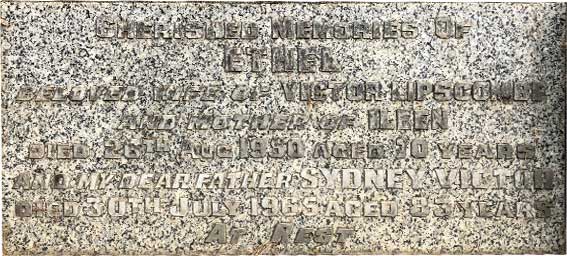 CHERISHED MEMORIES OF
ETHEL
BELOVED WIFE OF VICTOR LIPSCOMBE
AND MOTHER OF ILEEN
DIED 26TH AUG 1950 AGED 70 YEARS
AND MY DEAR FATHER SYDNEY VICTOR
DIED 30TH JULY 1965 AGED 83 YEARS
AT REST